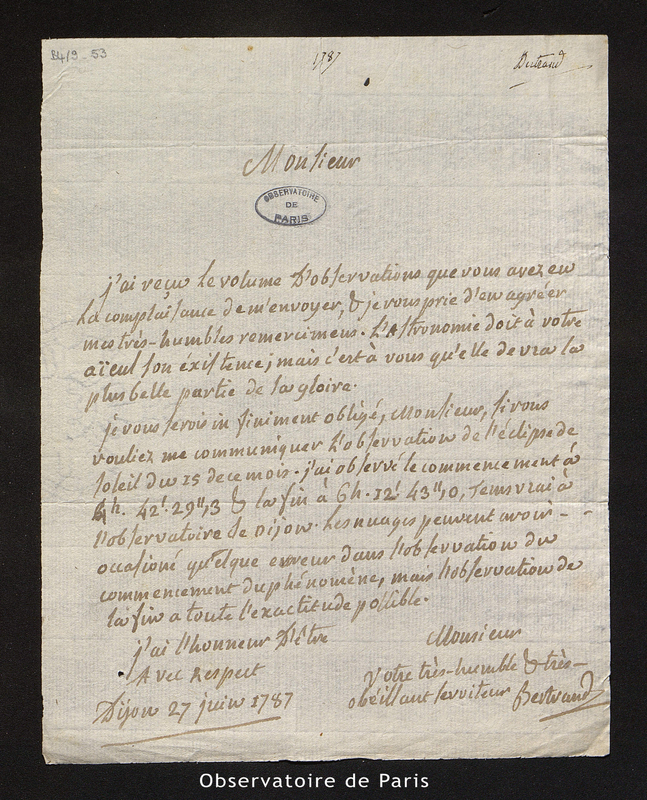 B4/9 - 53
1787
Bertrand
Monsieur
OBSERVATOIRE
DE
PARIS
j'ai reçu le volume D'observations que vous avez eu
La complaisance de m'envoyer, & je vous prie d'en agréer
mes très-humbles remercimens. L'Astronomie doit à votre
aïeul son éxistence; mais c'est à vous qu'elle devra la
plus belle partie de sa gloire.
je vous serois infiniment obligé, Monsieur, si vous
vouliez me communiquer L'observation de l'éclipse de
soleil du 15 de ce mois. j'ai observé le commencement à
4h. 42' 29",3 & la fin à 6h. 12' 43",0, tems vrai à
l'observatoire de Dijon. Les nuages peuvent avoir - -
occasioné quelque erreur dans l'observation du
commencement du phénomène, mais l'observation de
la fin a toute l'exactitude possible.
j'ai l'honneur D'être
Avec Respect
Monsieur
Votre très-humble & très-
obéissant serviteur Bertrand
Dijon 27 juin 1787
Observatoire de Paris